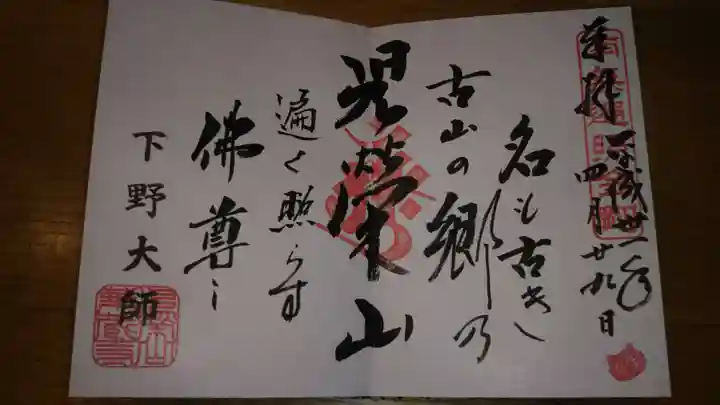 奉拝
平成卅一年
四月廿九日
名も古き
古山の郷乃
児栄山
遍く照らす
佛尊し
下野大師